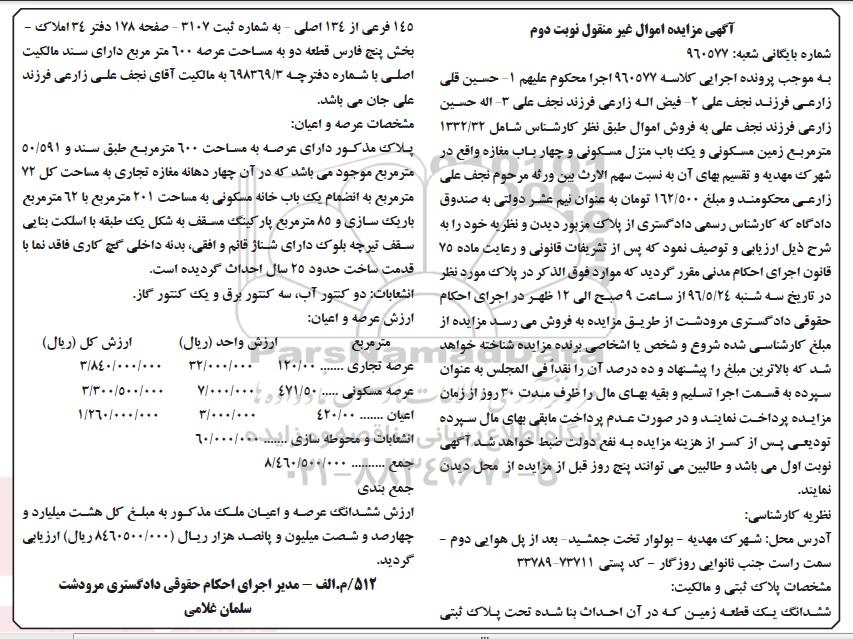 آگهی مزایده اموال غیر منقول نوبت دوم
شماره بایگانی شعبه: ۹۶۰۵۷۷
به موجب پرونده اجرایی کلاسه ۹۶۰۵۷۷ اجرا محکوم علیهم ۱- حسین قلی
زارعی فرزند نجف علی ۲- فیض اله زارعی فرزند نجف علی ۳- اله حسین
زارعی فرزند نجف علی به فروش اموال طبق نظر کارشناس شامل ۱۳۳۲/۳۲
مترمربع زمین مسکونی و یک باب منزل مسکونی و چهار باب مغازه واقع در
شهرک مهدیه و تقسیم بهای آن به نسبت سهم الارث بین ورثه مرحوم نجف علی
زارعی محکومند و مبلغ ۱۶۲/۵۰۰ تومان به عنوان نیم عشر دولتی به صندوق
دادگاه که کارشناس رسمی دادگستری از پلاک مزبور دیدن و نظریه خود را به
شرح ذیل ارزیابی و توصیف نمود که پس از تشریفات قانونی و رعایت ماده ۷۵
قانون اجرای احکام مدنی مقرر گردید که موارد فوق الذکر در پلاک مورد نظر
در تاریخ سه شنبه ۹۶/۵/۲۴ از ساعت ۹ صبح الی ۱۲ ظهر در اجرای احکام
حقوقی دادگستری مرودشت از طریق مزایده به فروش می رسد مزایده از
مبلغ کارشناسی شده شروع و شخص یا اشخاصی برنده مزایده شناخته خواهد
شد که بالاترین مبلغ را پیشنهاد و ده درصد آن را نقداً فی المجلس به عنوان
سپرده به قسمت اجرا تسلیم و بقیه بهای مال را ظرف مدت ۳۰ روز از زمان
مزایده پرداخت نمایند و در صورت عدم پرداخت مابقی بهای مال سپرده
تودیعی پس از کسر از هزینه مزایده به نفع دولت ضبط خواهد شد آگهی
نوبت اول می باشد و طالبین می توانند پنج روز قبل از مزایده از محل دیدن
نمایند.
نظریه کارشناسی:
آدرس محل: شهرک مهدیه - بولوار تخت جمشید- بعد از پل هوایی دوم -
سمت راست جنب نانوایی روزگار - کد پستی ۷۳۷۱۱-۳۳۷۸۹
مشخصات پلاک ثبتی و مالکیت:
ششدانگ یک قطعه زمین که در آن احداث بنا شده تحت پلاک ثبتی
۱۴۵ فرعی از ۱۳۴ اصلی - به شماره ثبت ۳۱۰۷ - صفحه ۱۷۸ دفتر ۳۴ املاک -
بخش پنج فارس قطعه دو به مساحت عرصه ۶۰۰ متر مربع دارای سند مالکیت
اصلی با شماره دفترچه ۶۹۸۳۶۹/۳ به مالکیت آقای نجف علی زارعی فرزند
علی جان می باشد.
مشخصات عرصه و اعیان:
پلاک مذکور دارای عرصه به مساحت ۶۰۰ مترمربع طبق سند و ۵۰/۵۹۱
مترمربع موجود می باشد که در آن چهار دهانه مغازه تجاری به مساحت کل ۷۲
مترمربع به انضمام یک باب خانه مسکونی به مساحت ۲۰۱ مترمربع با ۶۲ مترمربع
باریک سازی و ۸۵ مترمربع پارکینگ مسقف به شکل یک طبقه با اسلکت بنایی
سقف تیرچه بلوک دارای شناژ قائم و افقی، بدنه داخلی گچ کاری فاقد نما با
قدمت ساخت حدود ۲۵ سال احداث گردیده است.
انشعابات: دو کنتور آب، سه کنتور برق و یک کنتور گاز.
ارزش عرصه و اعیان:
مترمربع ارزش واحد (ریال) ارزش کل (ریال)
عرصه تجاری ....... ۱۲۰/۰۰ ۳۲/۰۰۰/۰۰۰ ۳/۸۴۰/۰۰۰/۰۰۰
عرصه مسکونی ..... ۴۷۱/۵۰ ۷/۰۰۰/۰۰۰ ۳/۳۰۰/۵۰۰/۰۰۰
اعیان ....... ۴۲۰/۰۰ ۳/۰۰۰/۰۰۰ ۱/۲۶۰/۰۰۰/۰۰۰
انشعابات و محوطه سازی ....... ۶۰/۰۰۰/۰۰۰
جمع .......... ۸/۴۶۰/۵۰۰/۰۰۰
جمع بندی
ارزش ششدانگ عرصه و اعیان ملک مذکور به مبلغ کل هشت میلیارد و
چهارصد و شصت میلیون و پانصد هزار ریال (۸۴۶۰۵۰۰/۰۰۰ ریال) ارزیابی
گردید.
۵۱۲/م.الف - مدیر اجرای احکام حقوقی دادگستری مرودشت
سلمان غلامی
ParsNamadData
پایگاه اطلاع رسانی مناقصه و مزایده
۰۲۱-۸۸۳۴۹۶۷۰-۵